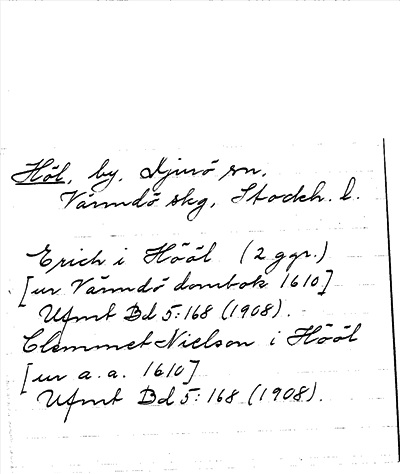 Höl, by, Djurö sn,
Värmdö skg, Stockh. l.
Erich i Hööl (2 ggr.)
[ur Värmdö dombok 1610]
Ufmt Bd 5:168 (1908).
Clemmet Nielson i Hööl
[ur a. a. 1610]
Ufmt Bd 5:168 (1908).